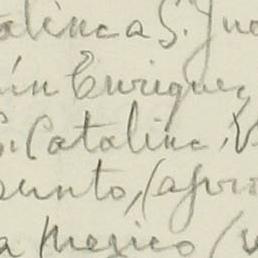 alinca S. Jua
ín Enriquez
S. Catalina, V
punto, (aprox
a Mexico (v